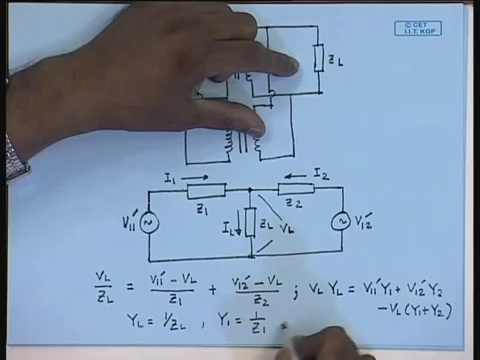 © CET
I.I.T. KGP
Z_L
I₁
I₂
Z₁
Z₂
V₁₁′
I_L
Z_L
V_L
V₁₂′
V_L/Z_L = (V₁₁′ − V_L)/Z₁ + (V₁₂′ − V_L)/Z₂ ; V_L Y_L = V₁₁′Y₁ + V₁₂′Y₂
− V_L(Y₁+Y₂)
Y_L = 1/Z_L , Y₁ = 1/Z₁